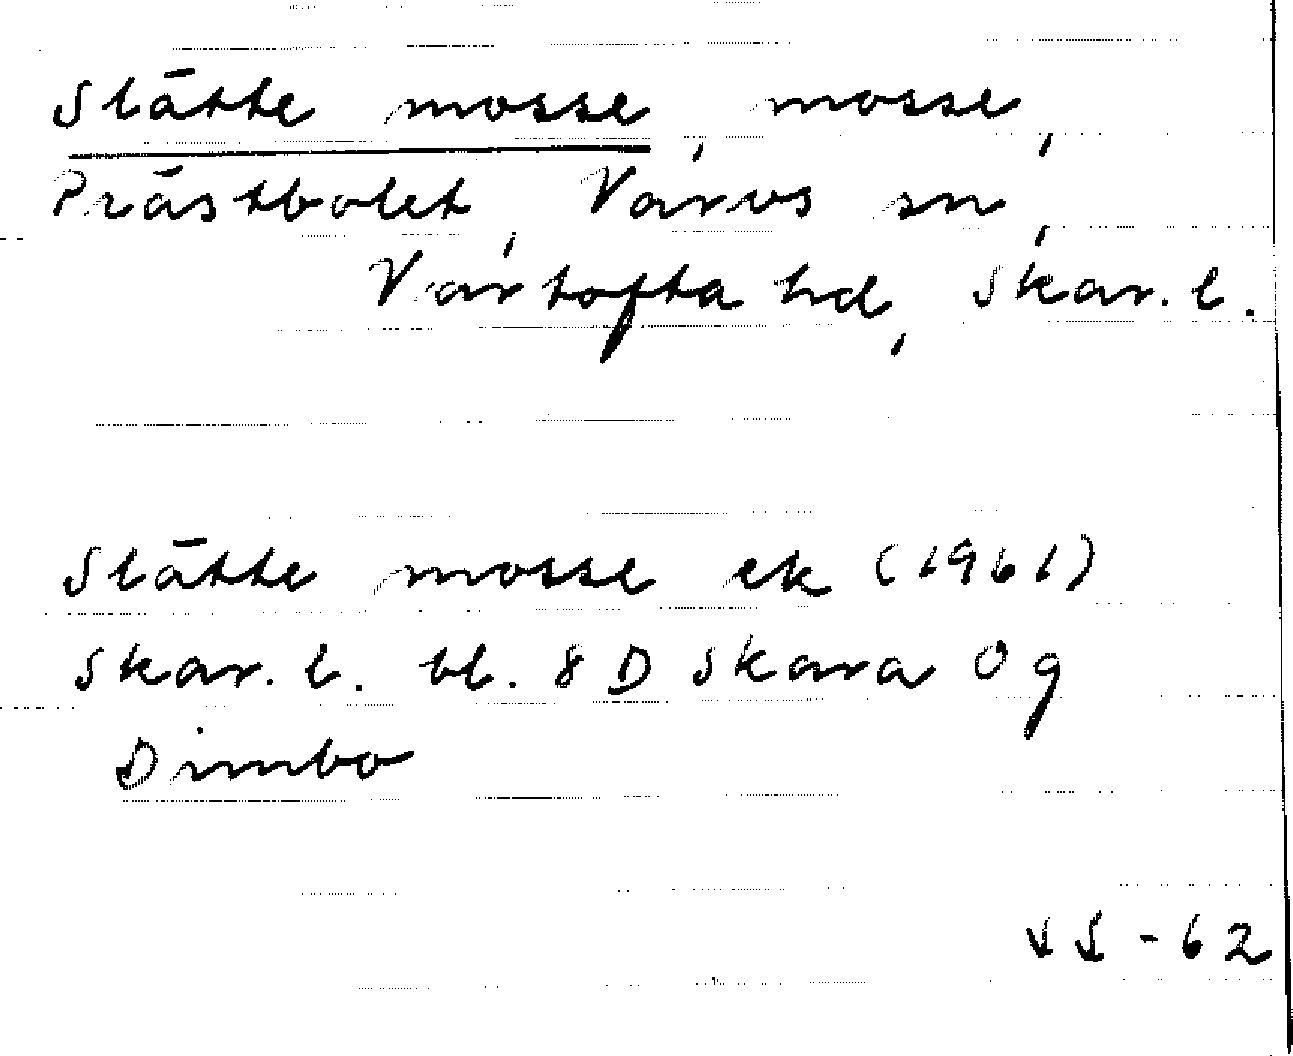 Slätte mosse, mosse,
Prästbolet, Varvs sn,
Vartofta hd, Skar. l.
Slätte mosse ek (1961)
Skar. l. bl. 8 D Skara 0 g
Dimbo
-62